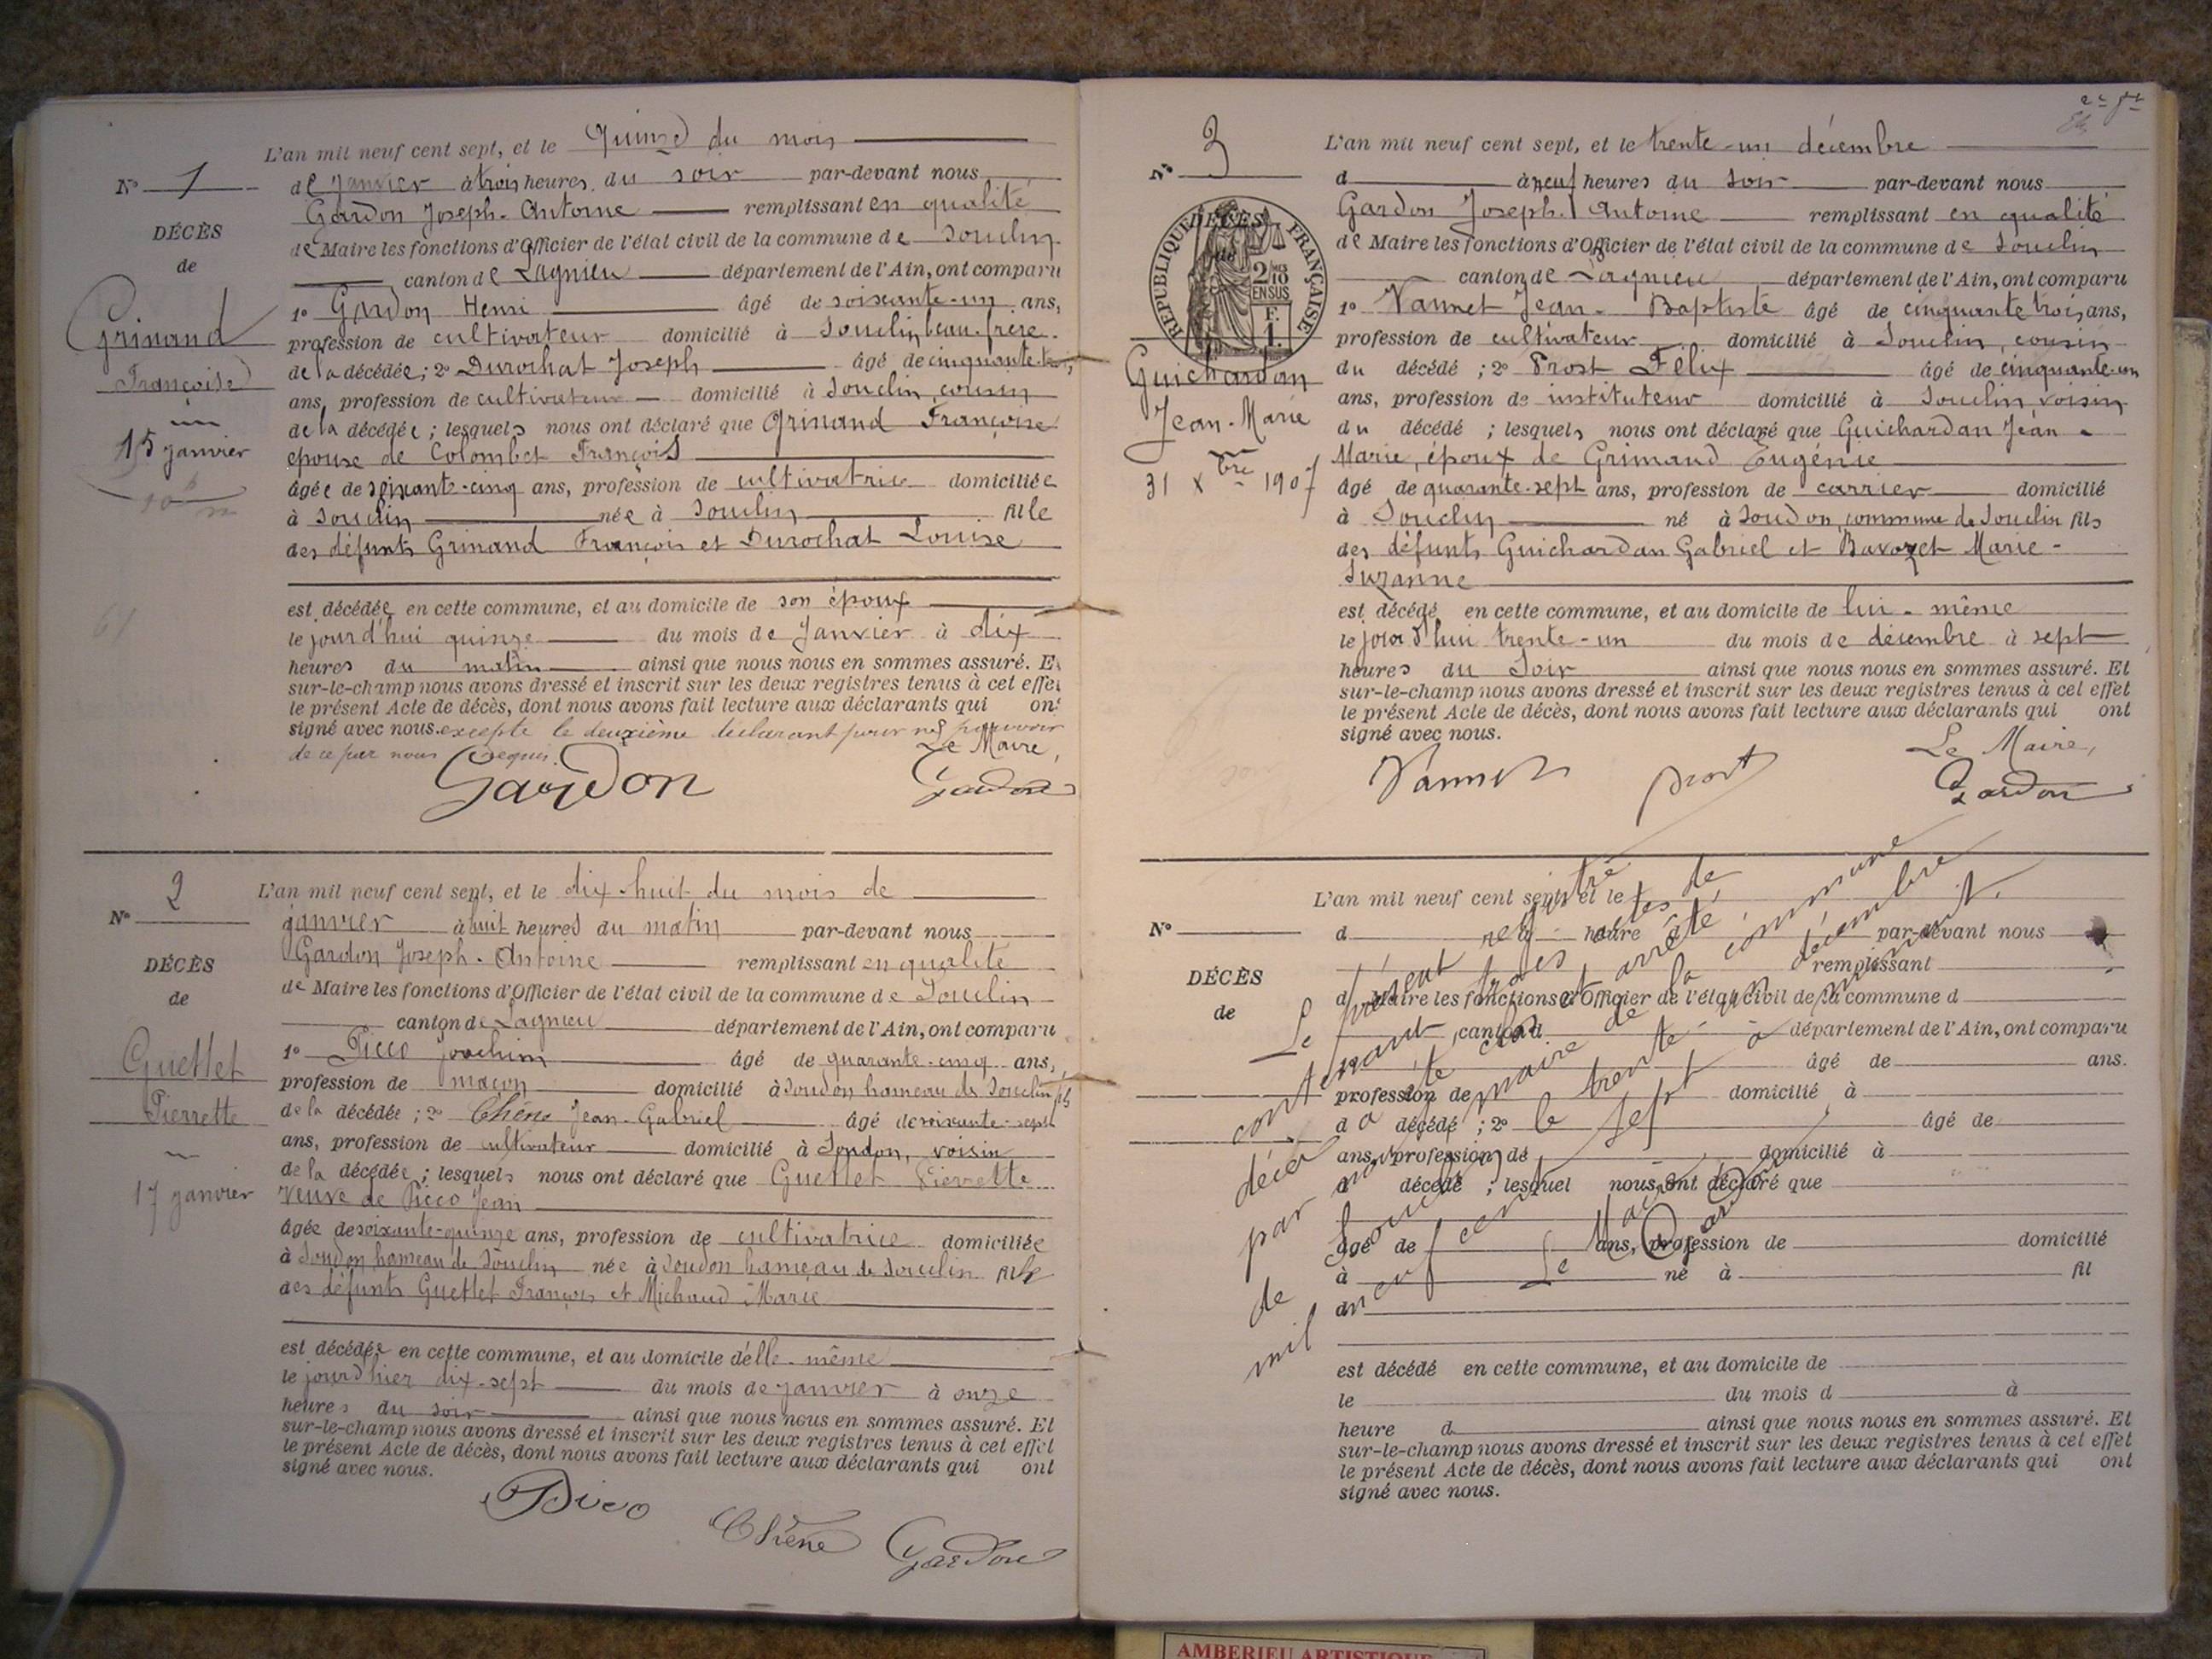 L'an mil neuf cent sept, et le Quinze du mois
N° 1
de Janvier à trois heures du soir par-devant nous
Gardon Joseph-Antoine remplissant en qualité
DÉCÈS
de Maire les fonctions d'Officier de l'état civil de la commune de Souclin
de
canton de Lagnieu département de l'Ain, ont comparu
Grinand
1° Gardon Henri âgé de soixante-un ans,
profession de cultivateur domicilié à Souclin, beau-frère
Françoise
de la décédée ; 2° Durochat Joseph âgé de cinquante
ans, profession de cultivateur domicilié à Souclin, cousin
15 janvier
de la décédée ; lesquels nous ont déclaré que Grinand Françoise
épouse de Colombet François
âgée de soixante-cinq ans, profession de cultivatrice domiciliée
à Souclin née à Souclin fille
des défunts Grinand François et Durochat Louise
est décédée en cette commune, et au domicile de son époux
le jourd'hui quinze du mois de Janvier à dix
heures du matin ainsi que nous nous en sommes assuré. Et
sur-le-champ nous avons dressé et inscrit sur les deux registres tenus à cet effet
le présent Acte de décès, dont nous avons fait lecture aux déclarants qui ont
signé avec nous. excepté le deuxième déclarant pour ne pouvoir
de ce par nous requis.
Le Maire,
Gardon Gardon
2
L'an mil neuf cent sept, et le dix-huit du mois de
N°
janvier à huit heures du matin par-devant nous
Gardon Joseph-Antoine remplissant en qualité
DÉCÈS
de Maire les fonctions d'Officier de l'état civil de la commune de Souclin
de
canton de Lagnieu département de l'Ain, ont comparu
Guettet
1° Picco Joachim âgé de quarante-cinq ans,
profession de maçon domicilié à Soudon hameau de Souclin fils
Pierrette
de la décédée ; 2° Chêne Jean-Gabriel âgé de soixante-sept
ans, profession de cultivateur domicilié à Soudon, voisin
17 janvier
de la décédée ; lesquels nous ont déclaré que Guettet Pierrette
Veuve de Picco Jean
âgée de soixante-quinze ans, profession de cultivatrice domiciliée
à Soudon hameau de Souclin née à Soudon hameau de Souclin fille
des défunts Guettet François et Michaud Marie
est décédée en cette commune, et au domicile d'elle-même
le jourd'hier dix-sept du mois de janvier à onze
heures du soir ainsi que nous nous en sommes assuré. Et
sur-le-champ nous avons dressé et inscrit sur les deux registres tenus à cet effet
le présent Acte de décès, dont nous avons fait lecture aux déclarants qui ont
signé avec nous.
Picco
Chêne Gardon
3
L'an mil neuf cent sept, et le trente-un décembre
N°
d à neuf heures du soir par-devant nous
Gardon Joseph-Antoine remplissant en qualité
DÉCÈS
de
RÉPUBLIQUE FRANÇAISE
2/10 EN SUS
F. 1.
de Maire les fonctions d'Officier de l'état civil de la commune de Souclin
canton de Lagnieu département de l'Ain, ont comparu
1° Vannet Jean-Baptiste âgé de cinquante trois ans,
profession de cultivateur domicilié à Souclin, cousin
Guichardan
du décédé ; 2° Prost Félix âgé de cinquante-un
Jean-Marie
ans, profession de instituteur domicilié à Souclin, voisin
du décédé ; lesquels nous ont déclaré que Guichardan Jean-
Marie, époux de Grimand Eugénie
31 Xbre 1907
âgé de quarante-sept ans, profession de carrier domicilié
à Souclin né à Soudon, commune de Souclin fils
des défunts Guichardan Gabriel et Bavozet Marie-
Suzanne
est décédé en cette commune, et au domicile de lui-même
le jourd'hui trente-un du mois de décembre à sept
heures du soir ainsi que nous nous en sommes assuré. Et
sur-le-champ nous avons dressé et inscrit sur les deux registres tenus à cet effet
le présent Acte de décès, dont nous avons fait lecture aux déclarants qui ont
signé avec nous.
Le Maire,
Vannet Prost Gardon
L'an mil neuf cent sept, et le
N°
d à heure d par-devant nous
remplissant
DÉCÈS
d Maire les fonctions d'Officier de l'état civil de la commune d
de
canton d département de l'Ain, ont comparu
âgé de ans.
profession de domicilié à
d décédé ; 2° âgé de
ans, profession de domicilié à
d décédé ; lesquel nous ont déclaré que
âgé de ans, profession de domicilié
à né à fil
d
est décédé en cette commune, et au domicile de
le du mois d à
heure d ainsi que nous nous en sommes assuré. Et
sur-le-champ nous avons dressé et inscrit sur les deux registres tenus à cet effet
le présent Acte de décès, dont nous avons fait lecture aux déclarants qui ont
signé avec nous.
Le présent registre
contenant trois actes de
décès a été clos et arrêté
par nous maire de la commune
de Souclin le trente un décembre
mil neuf cent sept à minuit.
Le Maire
Gardon
AMBERIEU ARTISTIQUE